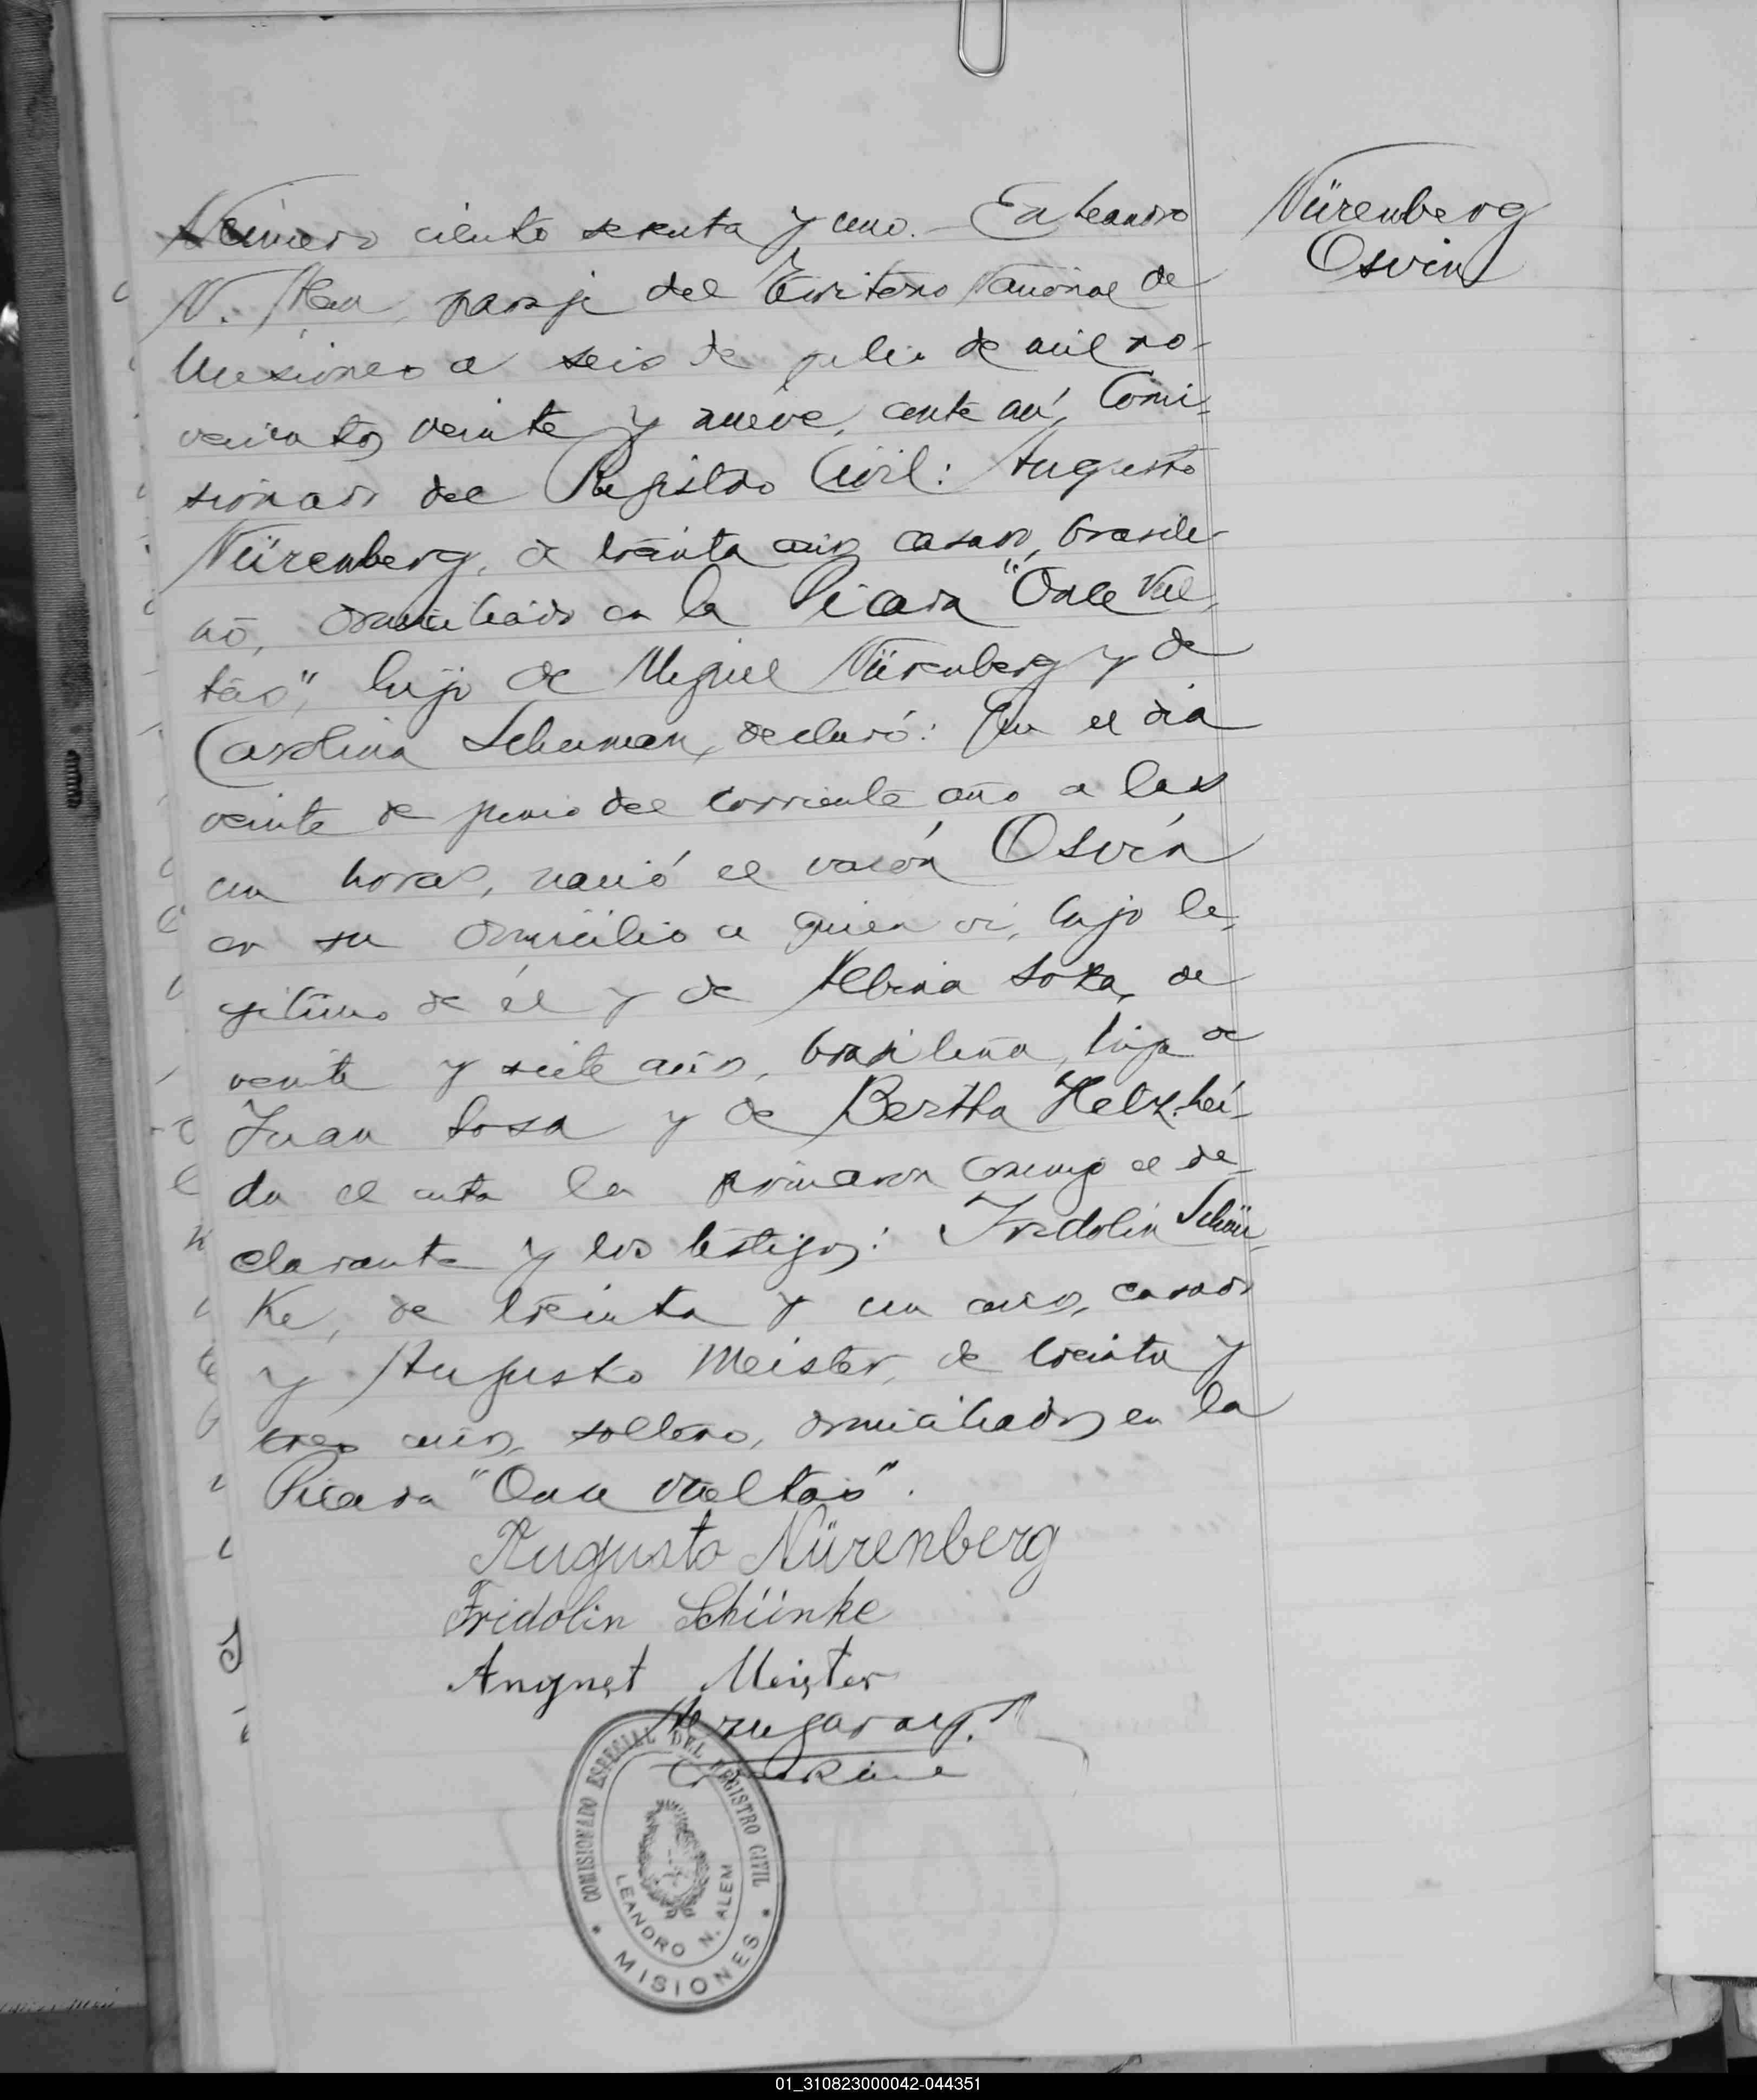 Número ciento sesenta y uno.- En Leandro
N. Alem, paraje del Territorio Nacional de
Misiones a seis de julio de mil no-
vecientos veinte y nueve, ante mí, Comi-
sionado del Registro Civil: Augusto
Nürenberg, de treinta años, casado, brasile-
ño, domiciliado en la Picada "Once Vuel-
tas", hijo de Miguel Nürenberg y de
Carolina Schuman, declaró: Que el día
veinte de junio del corriente año a las
un horas, nació el varón Osvín
en su domicilio a quien vi, hijo le-
gítimo de él y de Albina Sosa, de
veinte y siete años, brasileña, hija de
Juan Sosa y de Bertha Helz. Leí-
da el acta la firmaron conmigo el de-
clarante y los testigos: Fridolin Schün-
ke, de treinta y un años, casado
y Augusto Meister, de treinta y
tres años, soltero, domiciliados en la
Picada "Once Vueltas".
Nürenberg
Osvin
Augusto Nürenberg
Fridolin Schünke
August Meister
COMISIONADO ESPECIAL DEL REGISTRO CIVIL
LEANDRO N. ALEM
* MISIONES *
01_310823000042-044351